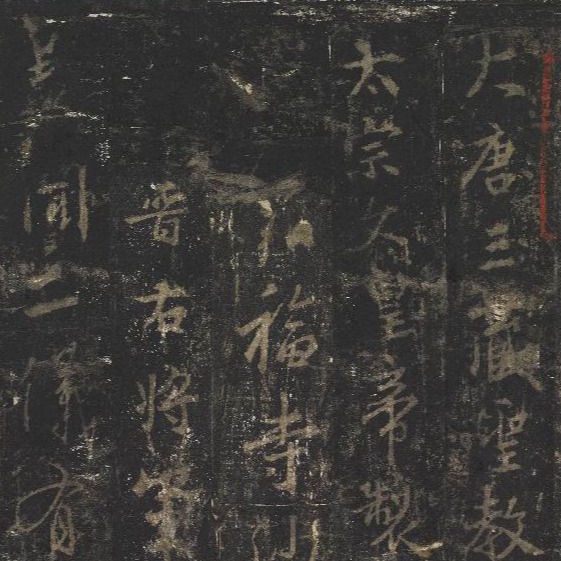 大唐三藏聖教
太宗文皇帝製
弘福寺沙
晉右將軍
蓋聞二儀有